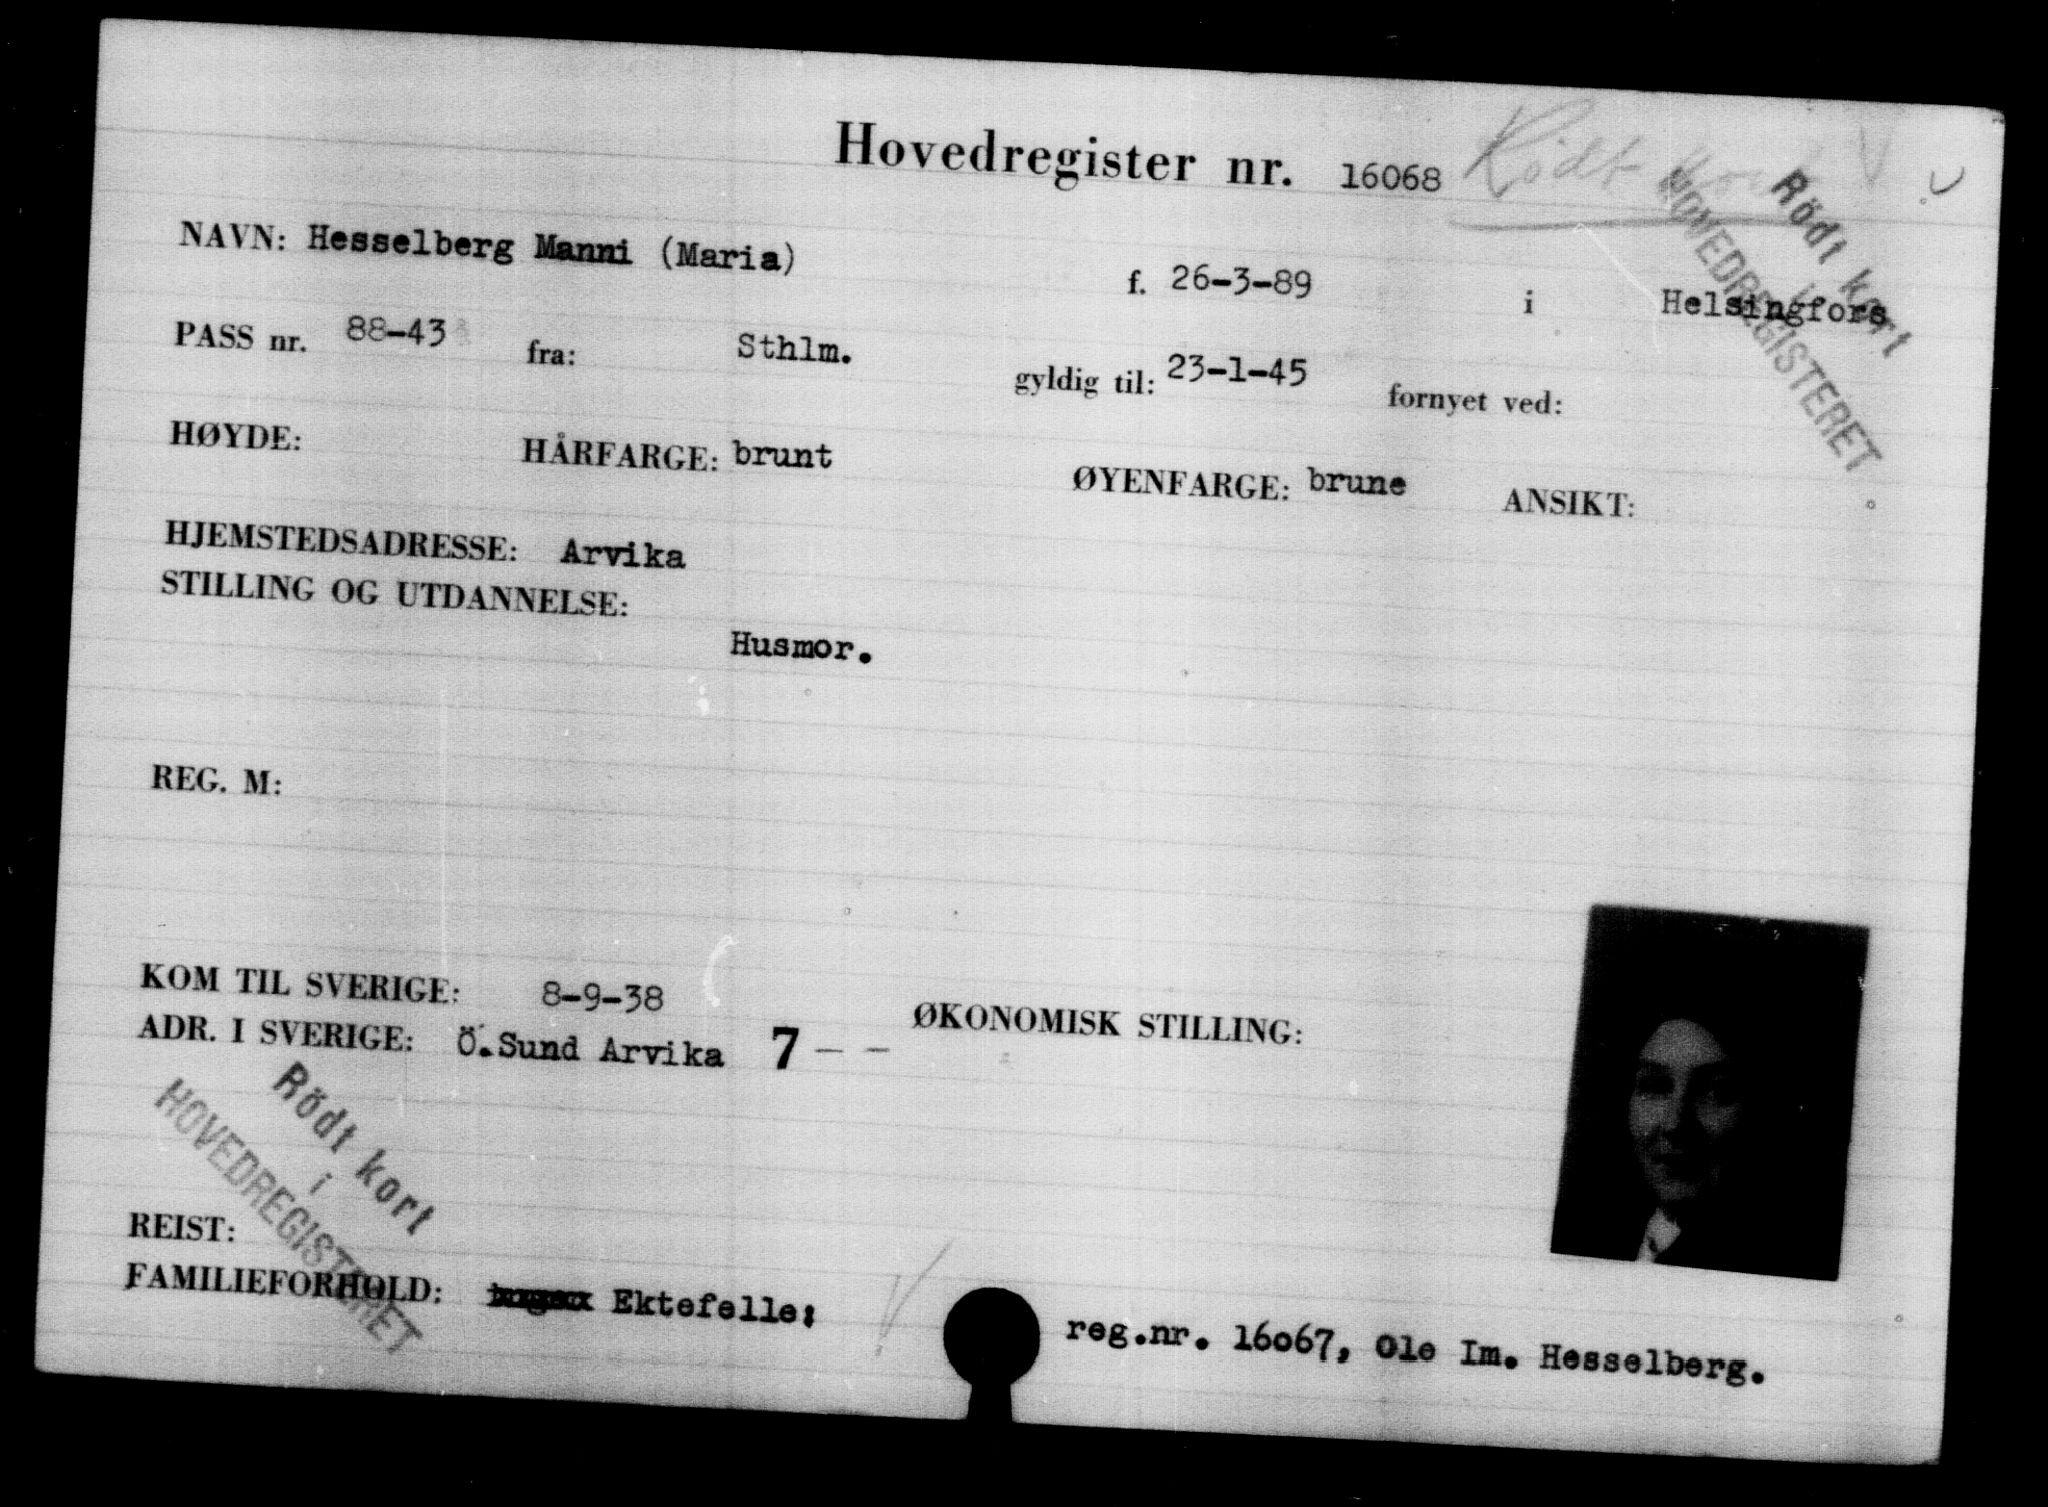 Hovedregister nr. 16068 Rödt kort
Rödt kort
i
HOVEDREGISTERET
NAVN: Hesselberg Manni (Maria) f. 26-3-89 i Helsingfors
PASS nr. 88-43 fra: Sthlm. gyldig til: 23-1-45 fornyet ved:
HØYDE: HÅRFARGE: brunt ØYENFARGE: brune ANSIKT:
HJEMSTEDSADRESSE: Arvika
STILLING OG UTDANNELSE:
Husmor.
REG. M:
KOM TIL SVERIGE: 8-9-38 ØKONOMISK STILLING:
ADR. I SVERIGE: Ö.Sund Arvika 7 - -
Rödt kort
i
HOVEDREGISTERET
REIST:
FAMILIEFORHOLD: Ektefelle: reg.nr. 16067, Ole Im. Hesselberg.